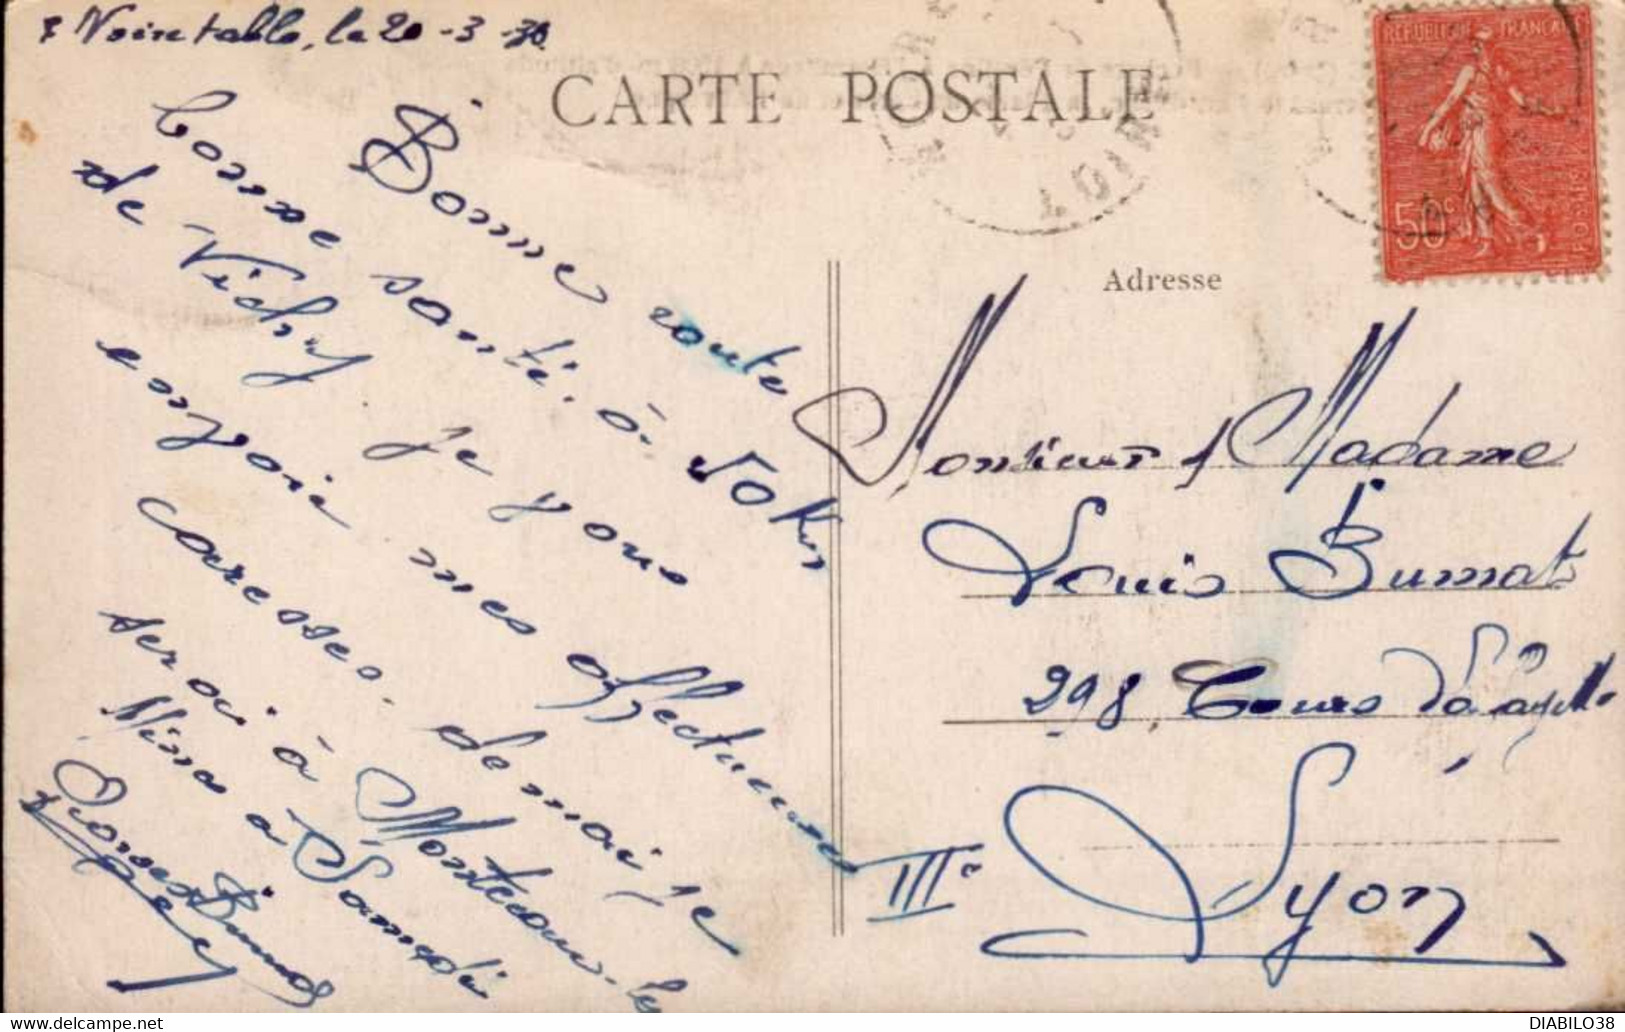 Noiretable, le 20-3-30
CARTE POSTALE
RÉPUBLIQUE FRANÇAISE
50c
POSTES
LOIRE
Bonne route
bonne santé. à 50 Km
de Vichy je vous
envoie mes affectueuses
caresses. demain je
serai à Montceau-les
Mines à Samedi
Adresse
Monsieur & Madame
Louis Bumat
298, Cours Lafayette
Lyon
IIIe
DIABILO38